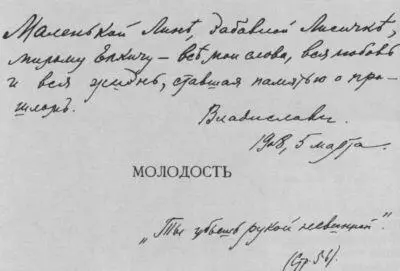 Маленькой Линѣ, забавной Лисичкѣ,
милому Ежичу — всѣ мои слова, вся любовь
и вся жизнь, ставшая памятью о про-
шломъ.
Владиславъ.
1908, 5 марта.
МОЛОДОСТЬ
„Ты убьешь рукой невинной".
(Стр. 56).